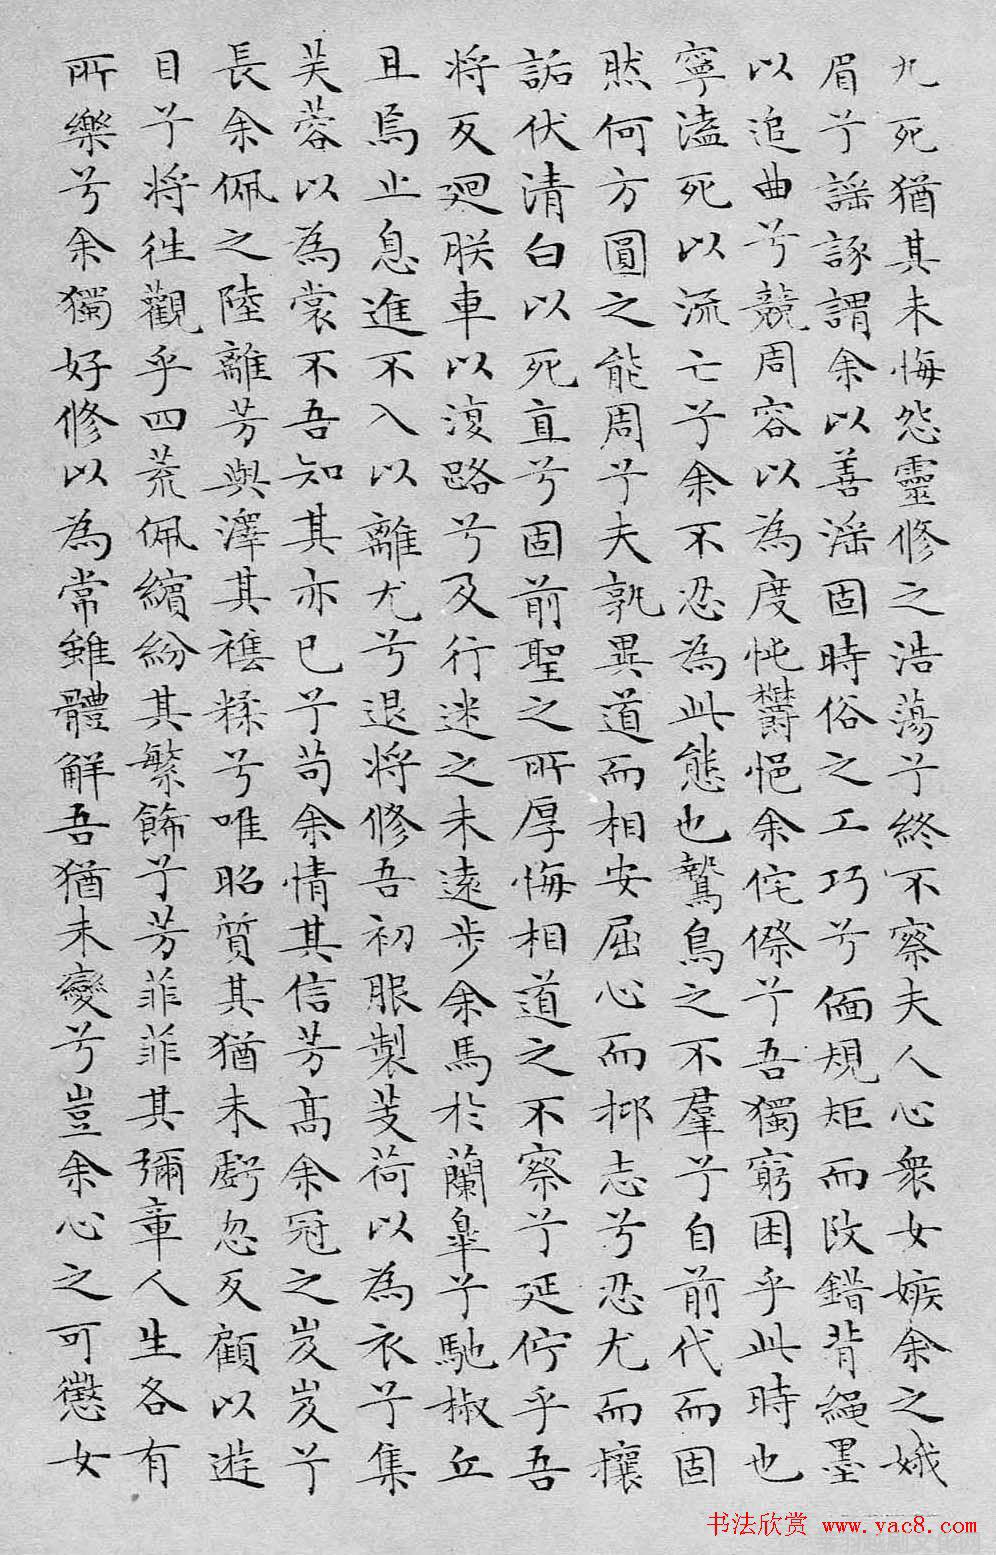 九死猶其未悔怨靈修之浩蕩兮終不察夫人心衆女嫉余之娥
眉兮謡諑謂余以善滛固時俗之工巧兮偭規矩而改錯背繩墨
以追曲兮競周容以為度忳欝悒余侘傺兮吾獨窮困乎此時也
寧溘死以流亡兮余不忍為此態也鷙鳥之不羣兮自前代而固
然何方圓之能周兮夫孰異道而相安屈心而抑志兮忍尤而攘
詬伏清白以死直兮固前聖之所厚悔相道之不察兮延佇乎吾
将反廻朕車以復路兮及行迷之未遠步余馬於蘭皋兮馳椒丘
且焉止息進不入以離尤兮退将修吾初服製芰荷以為衣兮集
芙蓉以為裳不吾知其亦已兮苟余情其信芳髙余冠之岌岌兮
長余佩之陸離芳與澤其襍糅兮唯昭質其猶未虧忽反顧以遊
目兮将往觀乎四荒佩繽紛其繁飾兮芳菲菲其彌章人生各有
所樂兮余獨好修以為常雖體解吾猶未變兮豈余心之可懲女
书法欣赏 www.yac8.com